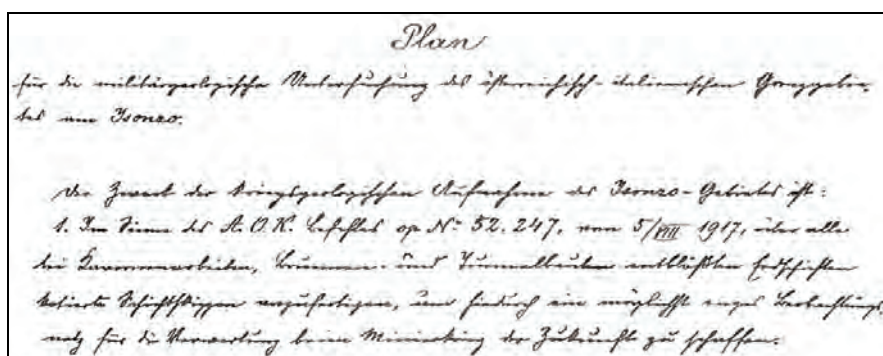 Plan
für die militärgeologische Untersuchung des österreichisch-italienischen Grenzgebie-
tes am Isonzo.
Der Zweck der kriegsgeologischen Aufnahme des Isonzo-Gebietes ist:
1. Im Sinne des A.O.K. Befehles op No 52.247, vom 5/VIII 1917, über alle
bei Kavernenarbeiten, Brunnen- und Tunnelbauten entblößten Erdschichten
kotierte Schichtskizzen anzufertigen, um hiedurch ein möglichst enges Beobachtungs-
netz für die Verwertung beim Minierkrieg der Zukunft zu schaffen.